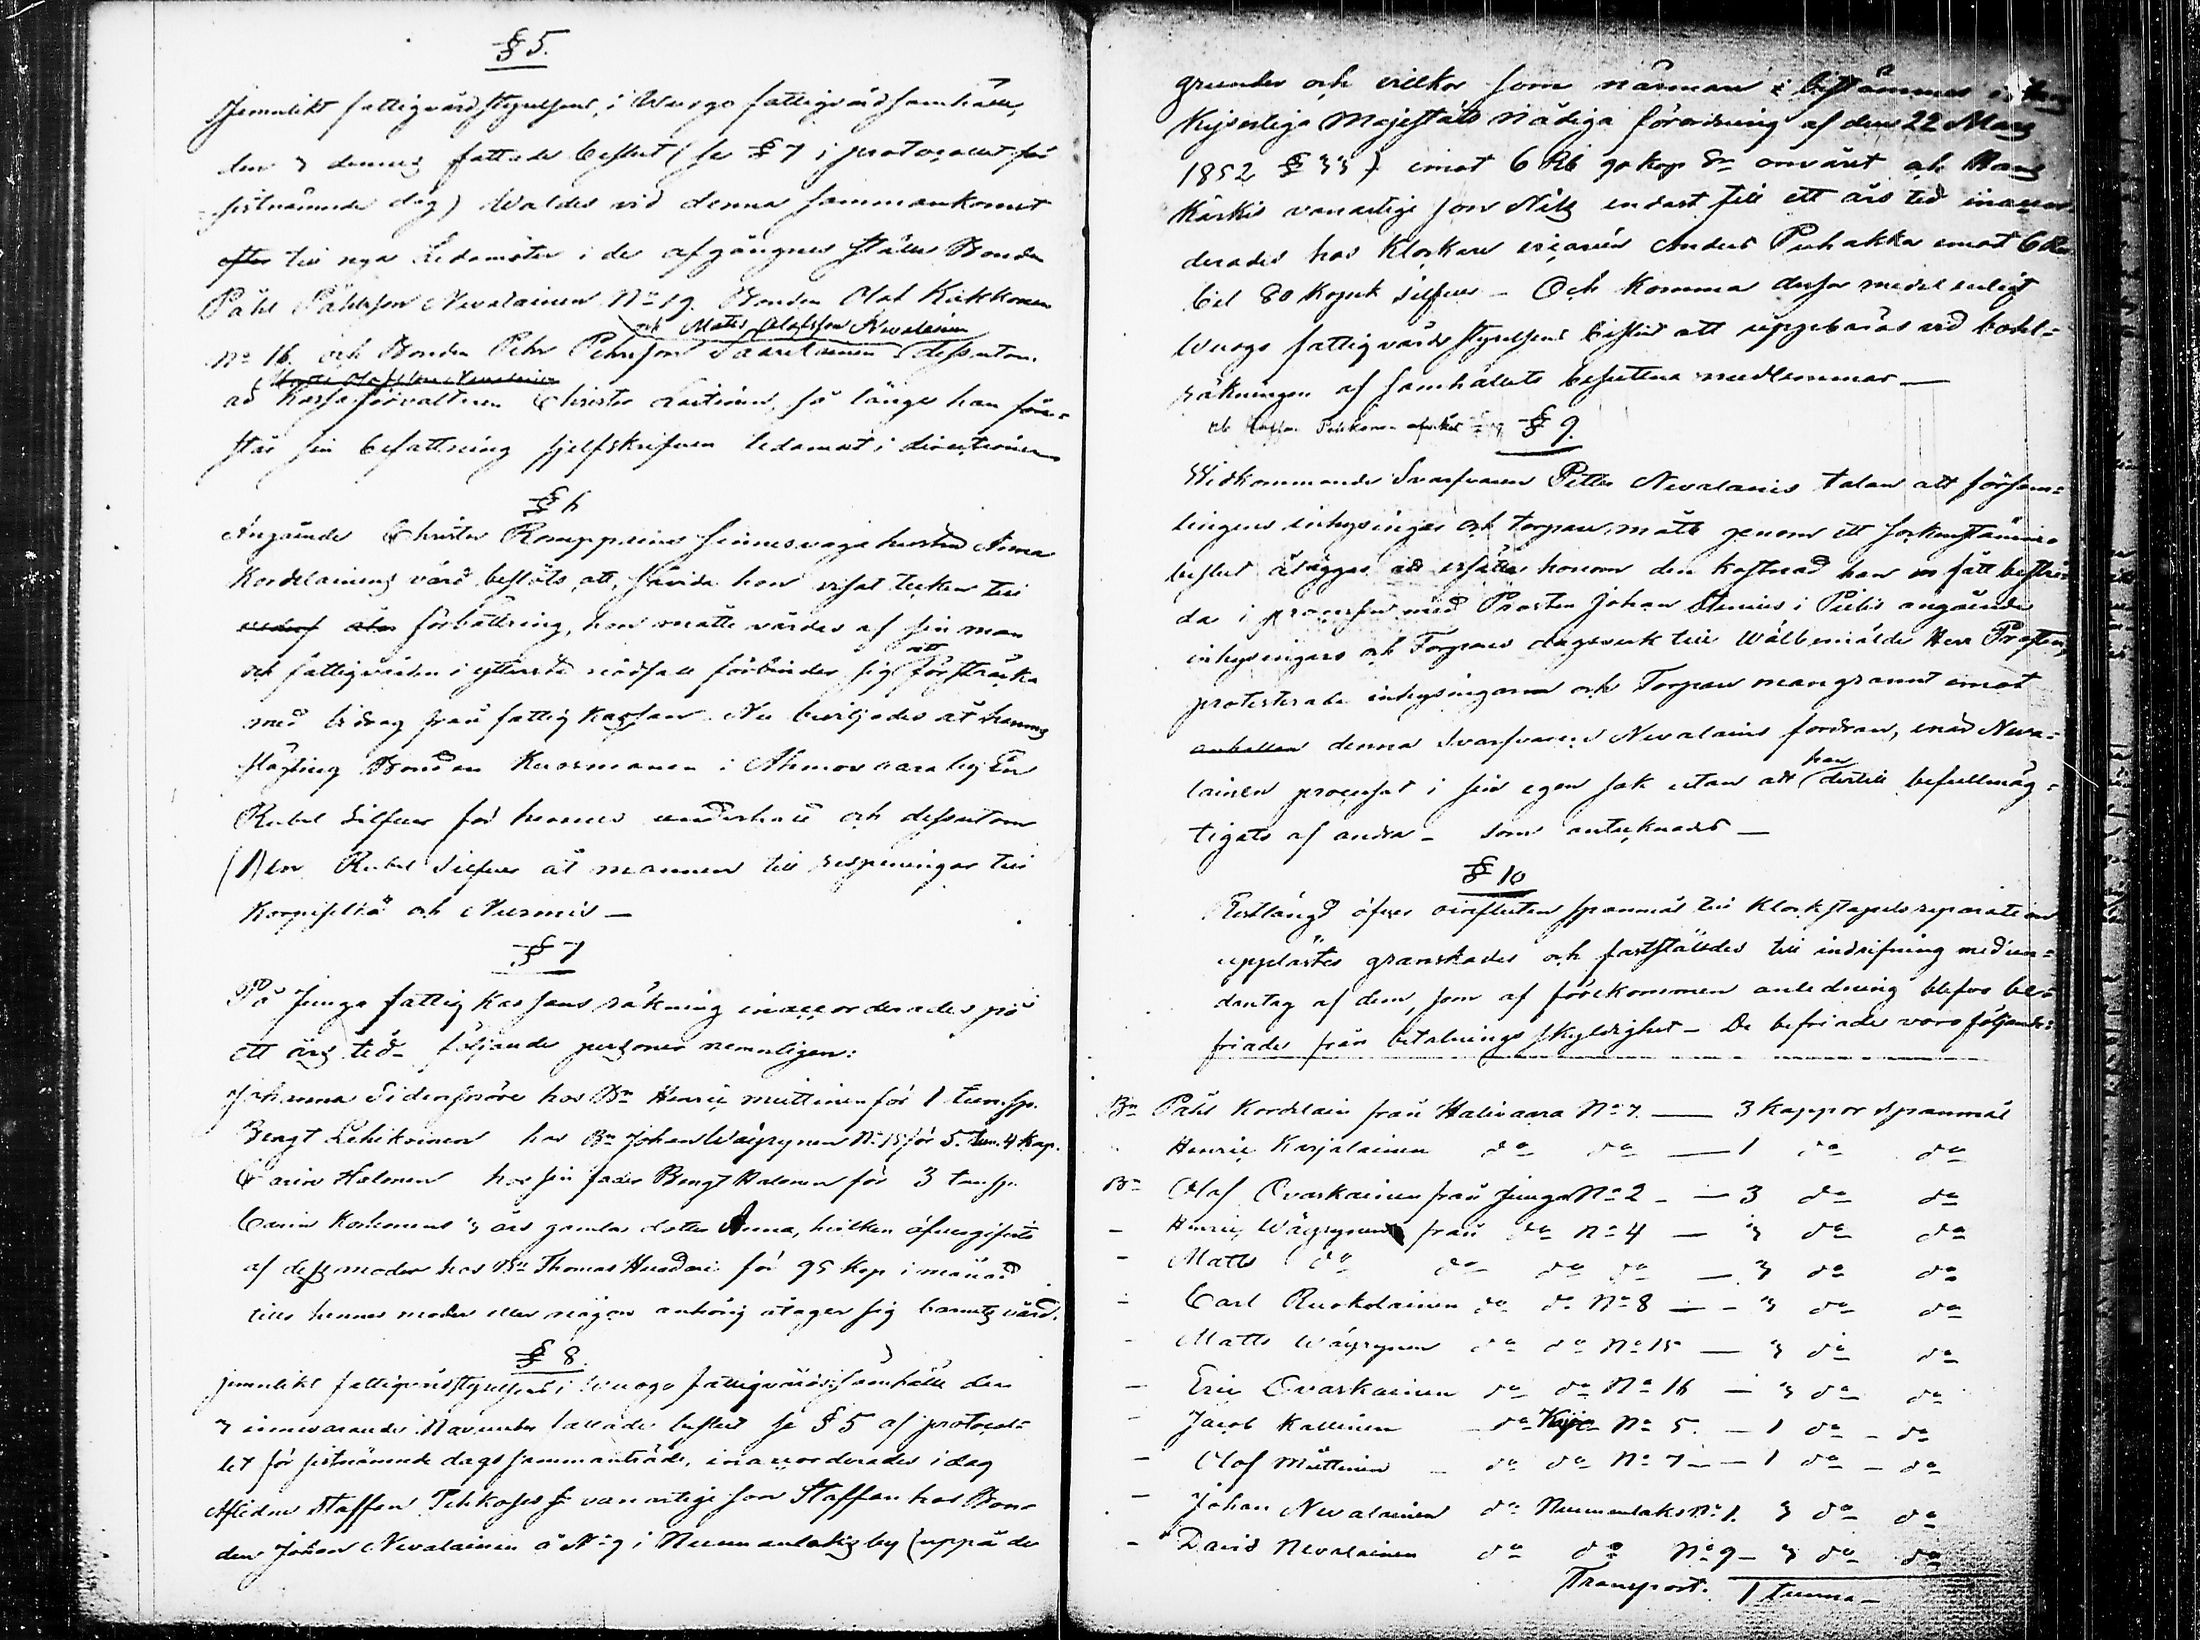 § 5.
Jemnlikt fattigvårdsstyrelsens i Wuogo fattigvårdsamhälle,
den 3 dennes fattade beslut (se § 7 i protocollet för
sistnämnde dag) Waldes vid denna sammankomst
efter till nya Ledamöter i de afgångnes ställe Bonden
Påhl Påhlsson Nevalainen No 19. Bonden Olof Kirkkonen
och Matts Olofsson Nevalainen
No 16. och Bonden Pehr Pehrsson Saarelainen dessutom
Matts Olofsson Nevalainen
är Kassaförvaltaren Christer så länge han före-
står sin befattning sjelfskrifven ledamot i directionen
§ 6
Angående Christer Romppainens sinnessvaga hustru Anna
Kordelainens vård beslöts, att, såvida hon visat tecken till
förbättring, hon måtte vårdas af sin man
att
och fattigvården i yttersta nödfall förbinder sig försträcka
med bidrag från fattig kassan. Nu beviljades åt hennes
slägting Bonden Kuosmanen i Ahmovaara by En
Rubel Silfver för hennes underhåll och dessutom
(1) en Rubel Silfver åt mannen till respenningar till
Korpiselkä och Nurmis —
§ 7
På Juuga fattig kassans räkning inaccorderades på
ett års tid följande personer nemnligen:
Johanna Sidensnöre hos Bn Henric Müttinen för 1 tun. sp.
Bengt Lehikoinen hos Bn Johan Wäyrynen No 15 för 5 tun. 4 kap.
Carin Halonen hos sin fader Bengt Halonen för 3 tun sp.
Carin Korhonens 3 års gamla dotter Anna, hvilken öfvergifvits
af dess moder hos Bn Thomas för 95 kop i månad
tills hennes moder eller någon anhörig åtager sig barnets vård.
§ 8.
jemnlikt fattigvårdsstyrelsens i Wuogo fattigvårdssamhälle den
3 innevarande November fattade beslut se § 5 af protocol-
let för sistnämnde dags sammanträde, inaccorderades i dag
Afledne Staffan Pehkoses vanartige son Staffan hos Bon-
den Johan Nevalainen å No 9 i Nunnanlahis by (uppå de
grunder och villkor som närmare bestämmes i
Kejserliga Majestäts Nådiga förordning af den 22 Mars
1852 § 33) emot 6 Rb 90 kop Sr om året och Hans
Kärkis vanartige son Nils endast till ett års tid inaccor-
derades hos Klockare vicarien Anders Puhakka emot 6 Ru-
bel 80 kopek silfver — Och komma dessa medel enligt
Wuogo fattigvårdsstyrelsens beslut att uppebäras vid bohl-
räkningen af samhällets besuttna medlemmar —
§ 9.
Widkommande Svarfvaren Petter Nevalains talan att försam-
lingens inhysingar och torpare måtte genom ett sockenstämmo
beslut åläggas att ersätta honom den kostnad han fått bestri-
da i processen med Prosten Johan Stenius i Pielis angående
inhysingars och Torpares dagsverk till Wälbemälde Herr Prosten,
protesterade inhysingarne och Torpare mangrannt emot
denna Svarfvarens Nevalains fordran, enär Neva-
han
lainen processat i sin egen sak utan att dertill befullmäg-
tigats af andra — som antecknades —
§ 10
Restlängd öfver oinfluten spannmål till Klockstapels reparation
upplästes granskades och fastställdes till indrifning med un-
dantag af dem, som af förekommen anledning blefvo be-
friade från betalnings skyldighet — De befriade voro följande:
Bn Påhl Kordelain från Halivaara No 7. — 3 kappor Spannmål
Henric Karjalainen do do — 1 do do
Bn Olof Ovaskainen från Juuga No 2 — 3 do do
- Henric Wäyrynen från do No 4 — 3 do do
- Matts do do do do — 3 do do
- Carl Ruokolainen do do No 8 — 3 do do
- Matts Wäyrynen do do No 15 — 3 do do
- Eric Ovaskainen do do No 16 — 3 do do
- Jacob Kallinen do No 5. — 1 do do
- Olof Müttinen do do No 7 — 1 do do
- Johan Nevalainen do Nunnanlaks No 1. 3 do do
- David Nevalainen do do No 9 — 3 do do
Transport. 1 tunna —